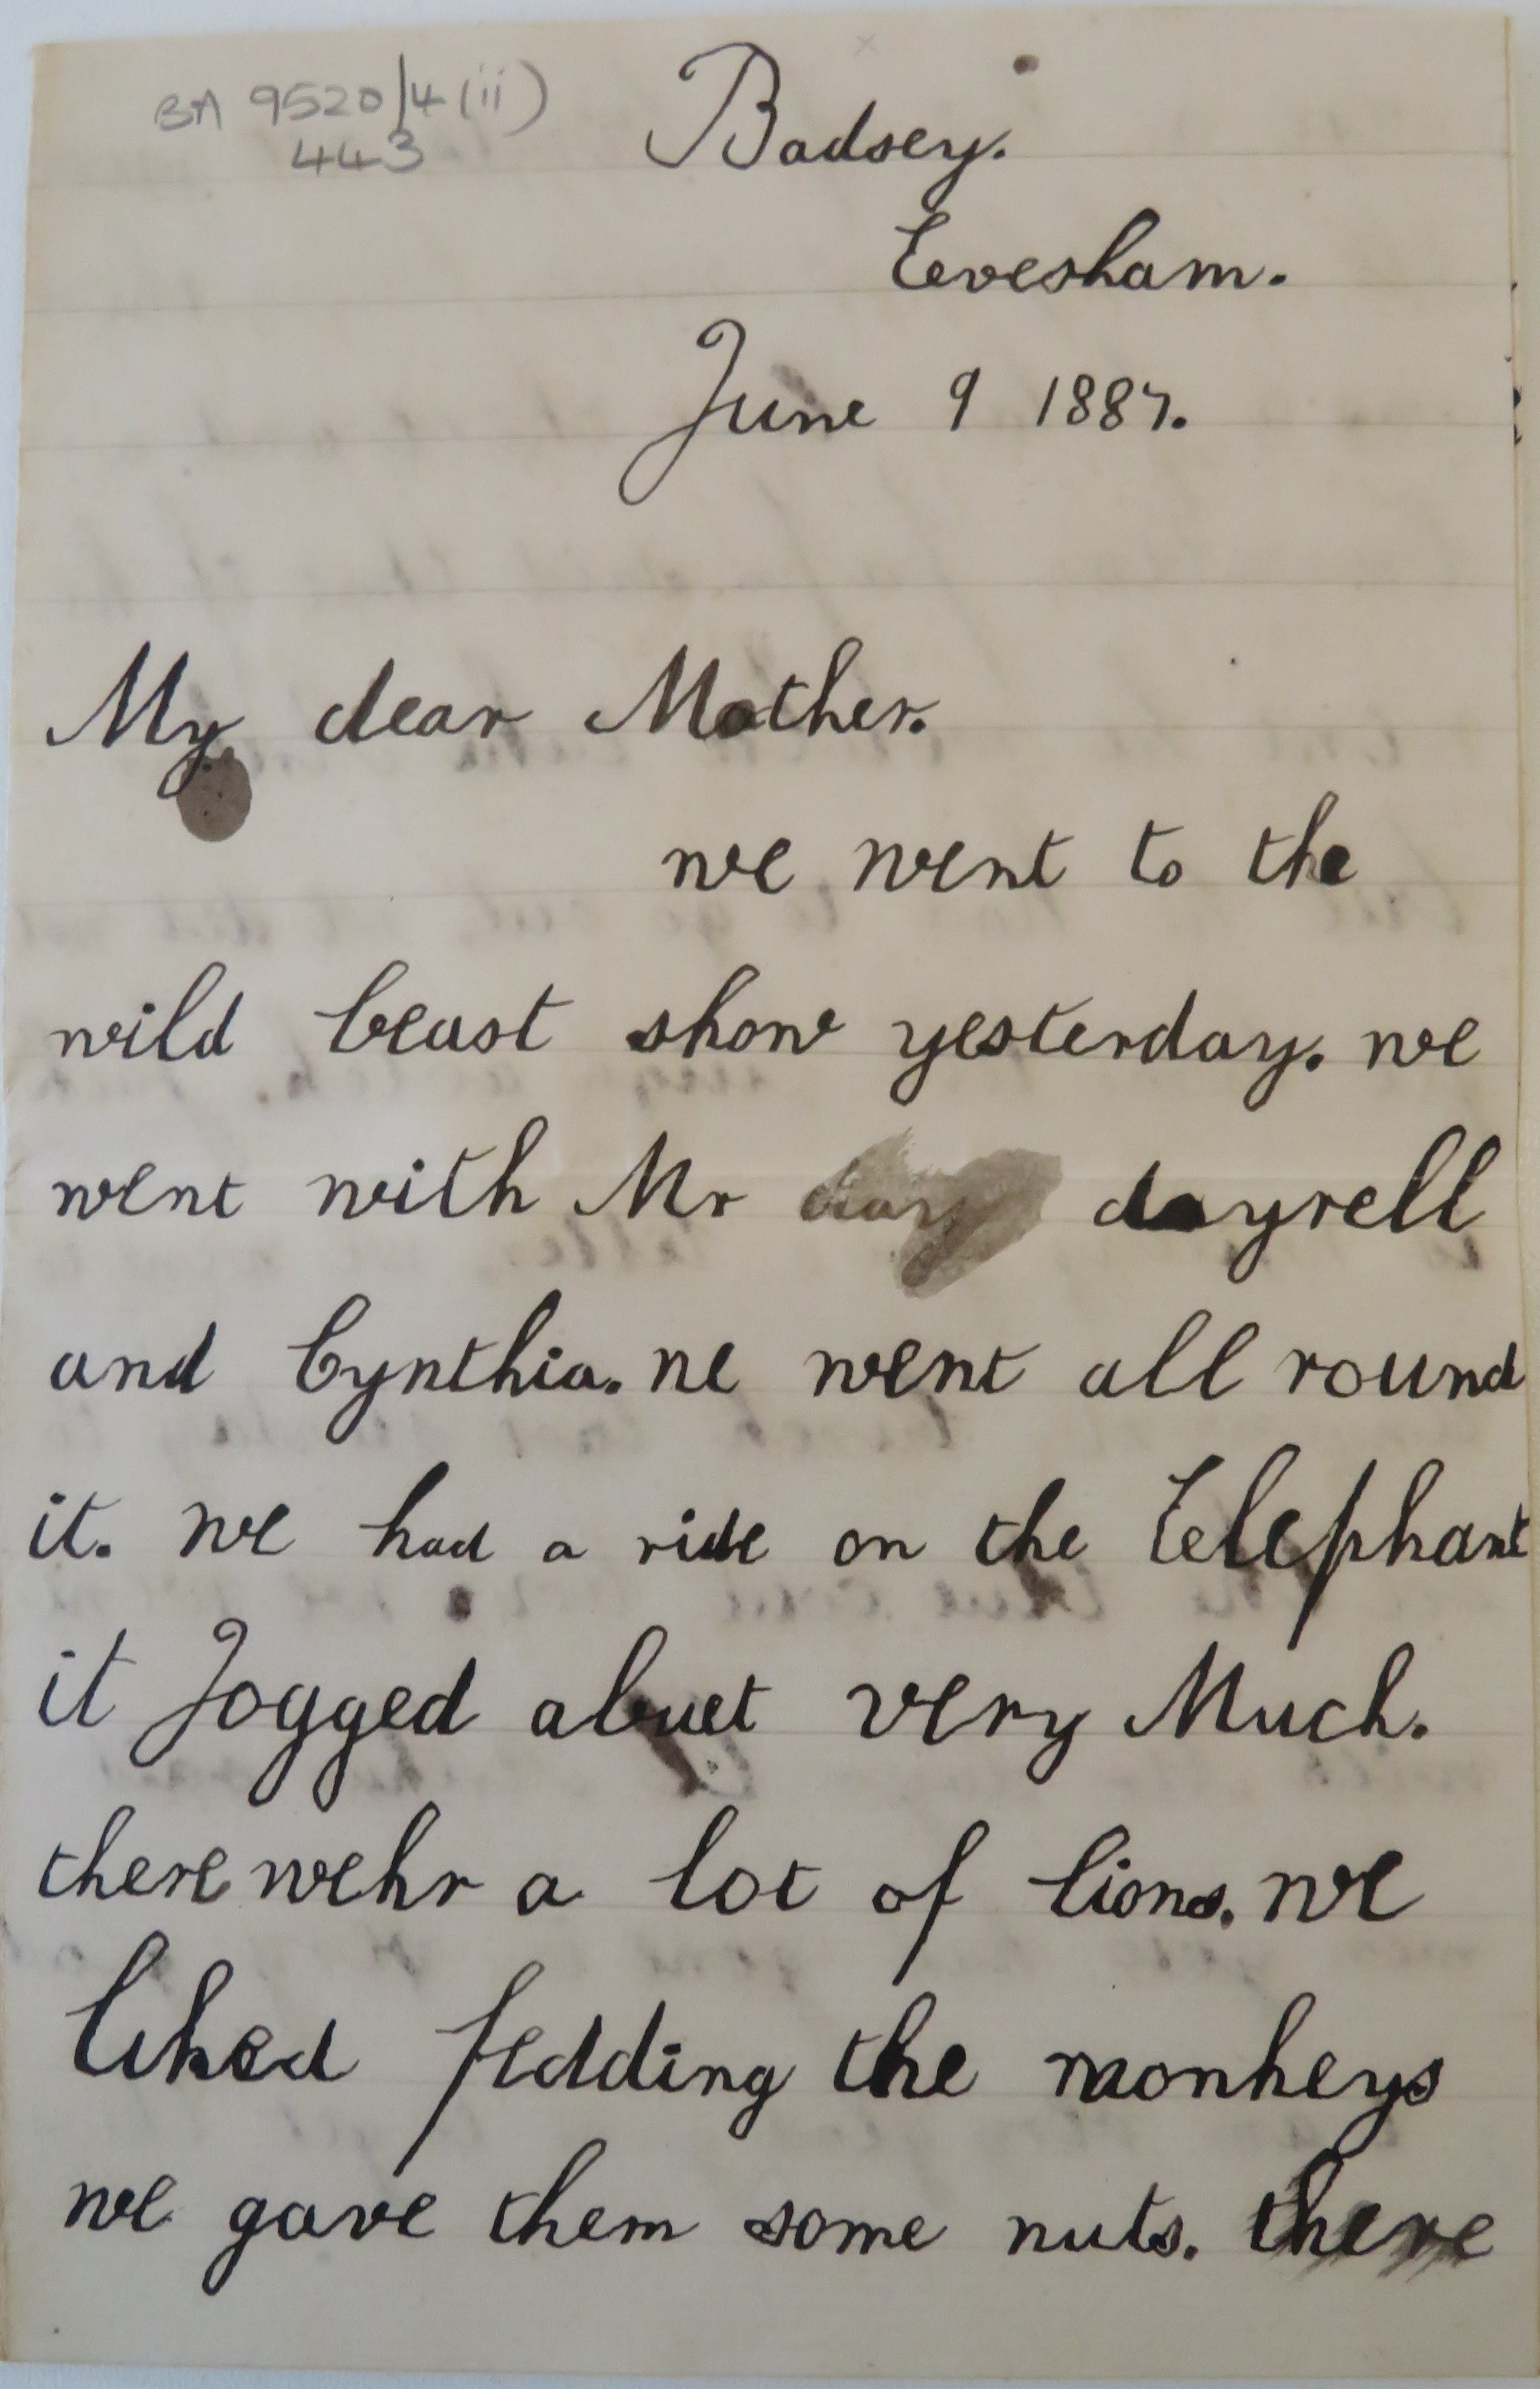 BA 9520/4(ii)
443
Badsey.
Evesham.
June 9 1887.
My dear Mother.
we went to the
wild beast show yesterday. we
went with Mr day dayrell
and Cynthia. we went all round
it. we had a ride on the Elephant
it Jogged abuet very Much.
there wehr a lot of lions. we
liked fedding the monkeys
we gave them some nuts. there